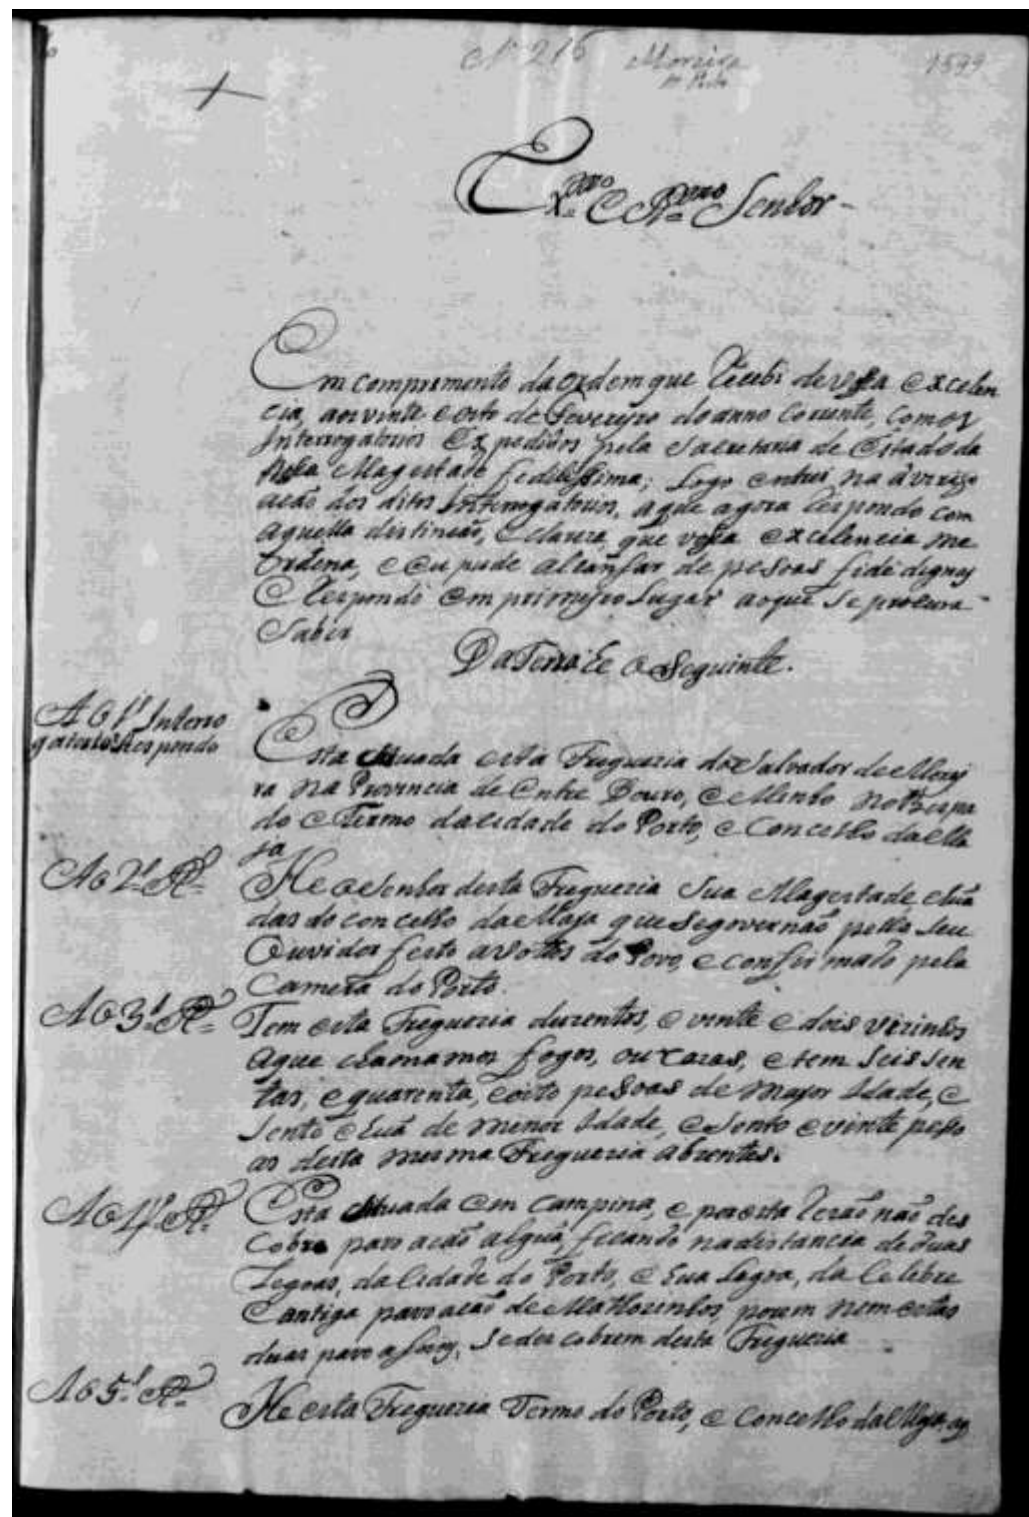 Nº 216 Moreira 1599
m. Porto
Ex.mo E R.mo Senhor
Em comprimento da ordem que Recebi de vossa excelen
cia, aos vinte e oito de Fevereyro do anno corrente, com os
Interrogatorios Expedidos pela Sacretaria de Estado da
Magestade fedilissima; logo entrei na averigo
acaõ dos ditos Interrogatorios, aque agora Respondo com
aquella destincaõ, e clareza, que vossa excelencia me
ordena, e eu pude alcansar de pesoas fide dignas
E Respondo em primeyro lugar aoque se procura
Saber
Da Terra He o Seguinte.
Ao 1º Interro
gatorio Respondo
Esta situada esta Freguezia do Salvador de Morey
ra na Provincia de Entre Douro, e Minho no Bispa
do e Termo da cidade do Porto, e Concelho da Ma
ja
Ao 2º R.
He o Senhor desta Freguezia Sua Magestade e hũa
das do concelho da Maja que se governaõ pello seu
Ouvidor feito a vottos do Povo, e confirmado pela
Camera do Porto.
Ao 3º R.
Tem esta Freguezia duzentos, e vinte e dois vizinhos
aque chamamos fogos, ou cazas, e tem seis sen
tas, e quarenta, e oito pesoas de major Idade, e
sento e hũa de menor Idade, e sento e vinte pesso
as desta mesma Freguezia abzentes.
Ao 4º R.
Esta situada em campina, e por esta Rezaõ naõ des
cobre povoacaõ algũa, ficando na distancia de duas
Legoas, da Cidade do Porto, e hua Legoa, da Celebre
e antiga povoacaõ de Mathozinhos, porem nem estas
duas povoasoins, se descobrem desta Freguezia
Ao 5º R.
He esta Freguezia Termo do Porto, e Concelho da Maja,